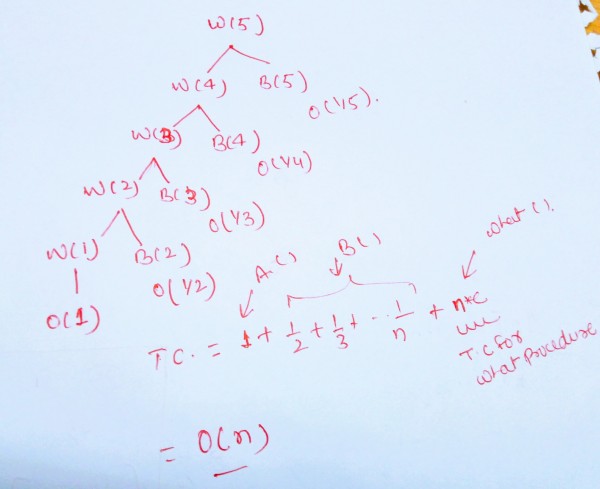 W(5)
W(4) B(5)
O(1/5).
W(3) B(4)
O(1/4)
W(2) B(3)
O(1/3)
W(1) B(2)
O(1/2)
O(1)
A() B() what().
T.C. = 1 + 1/2 + 1/3 + .. 1/n + n*c
T.C for
what Procedure
= O(n)